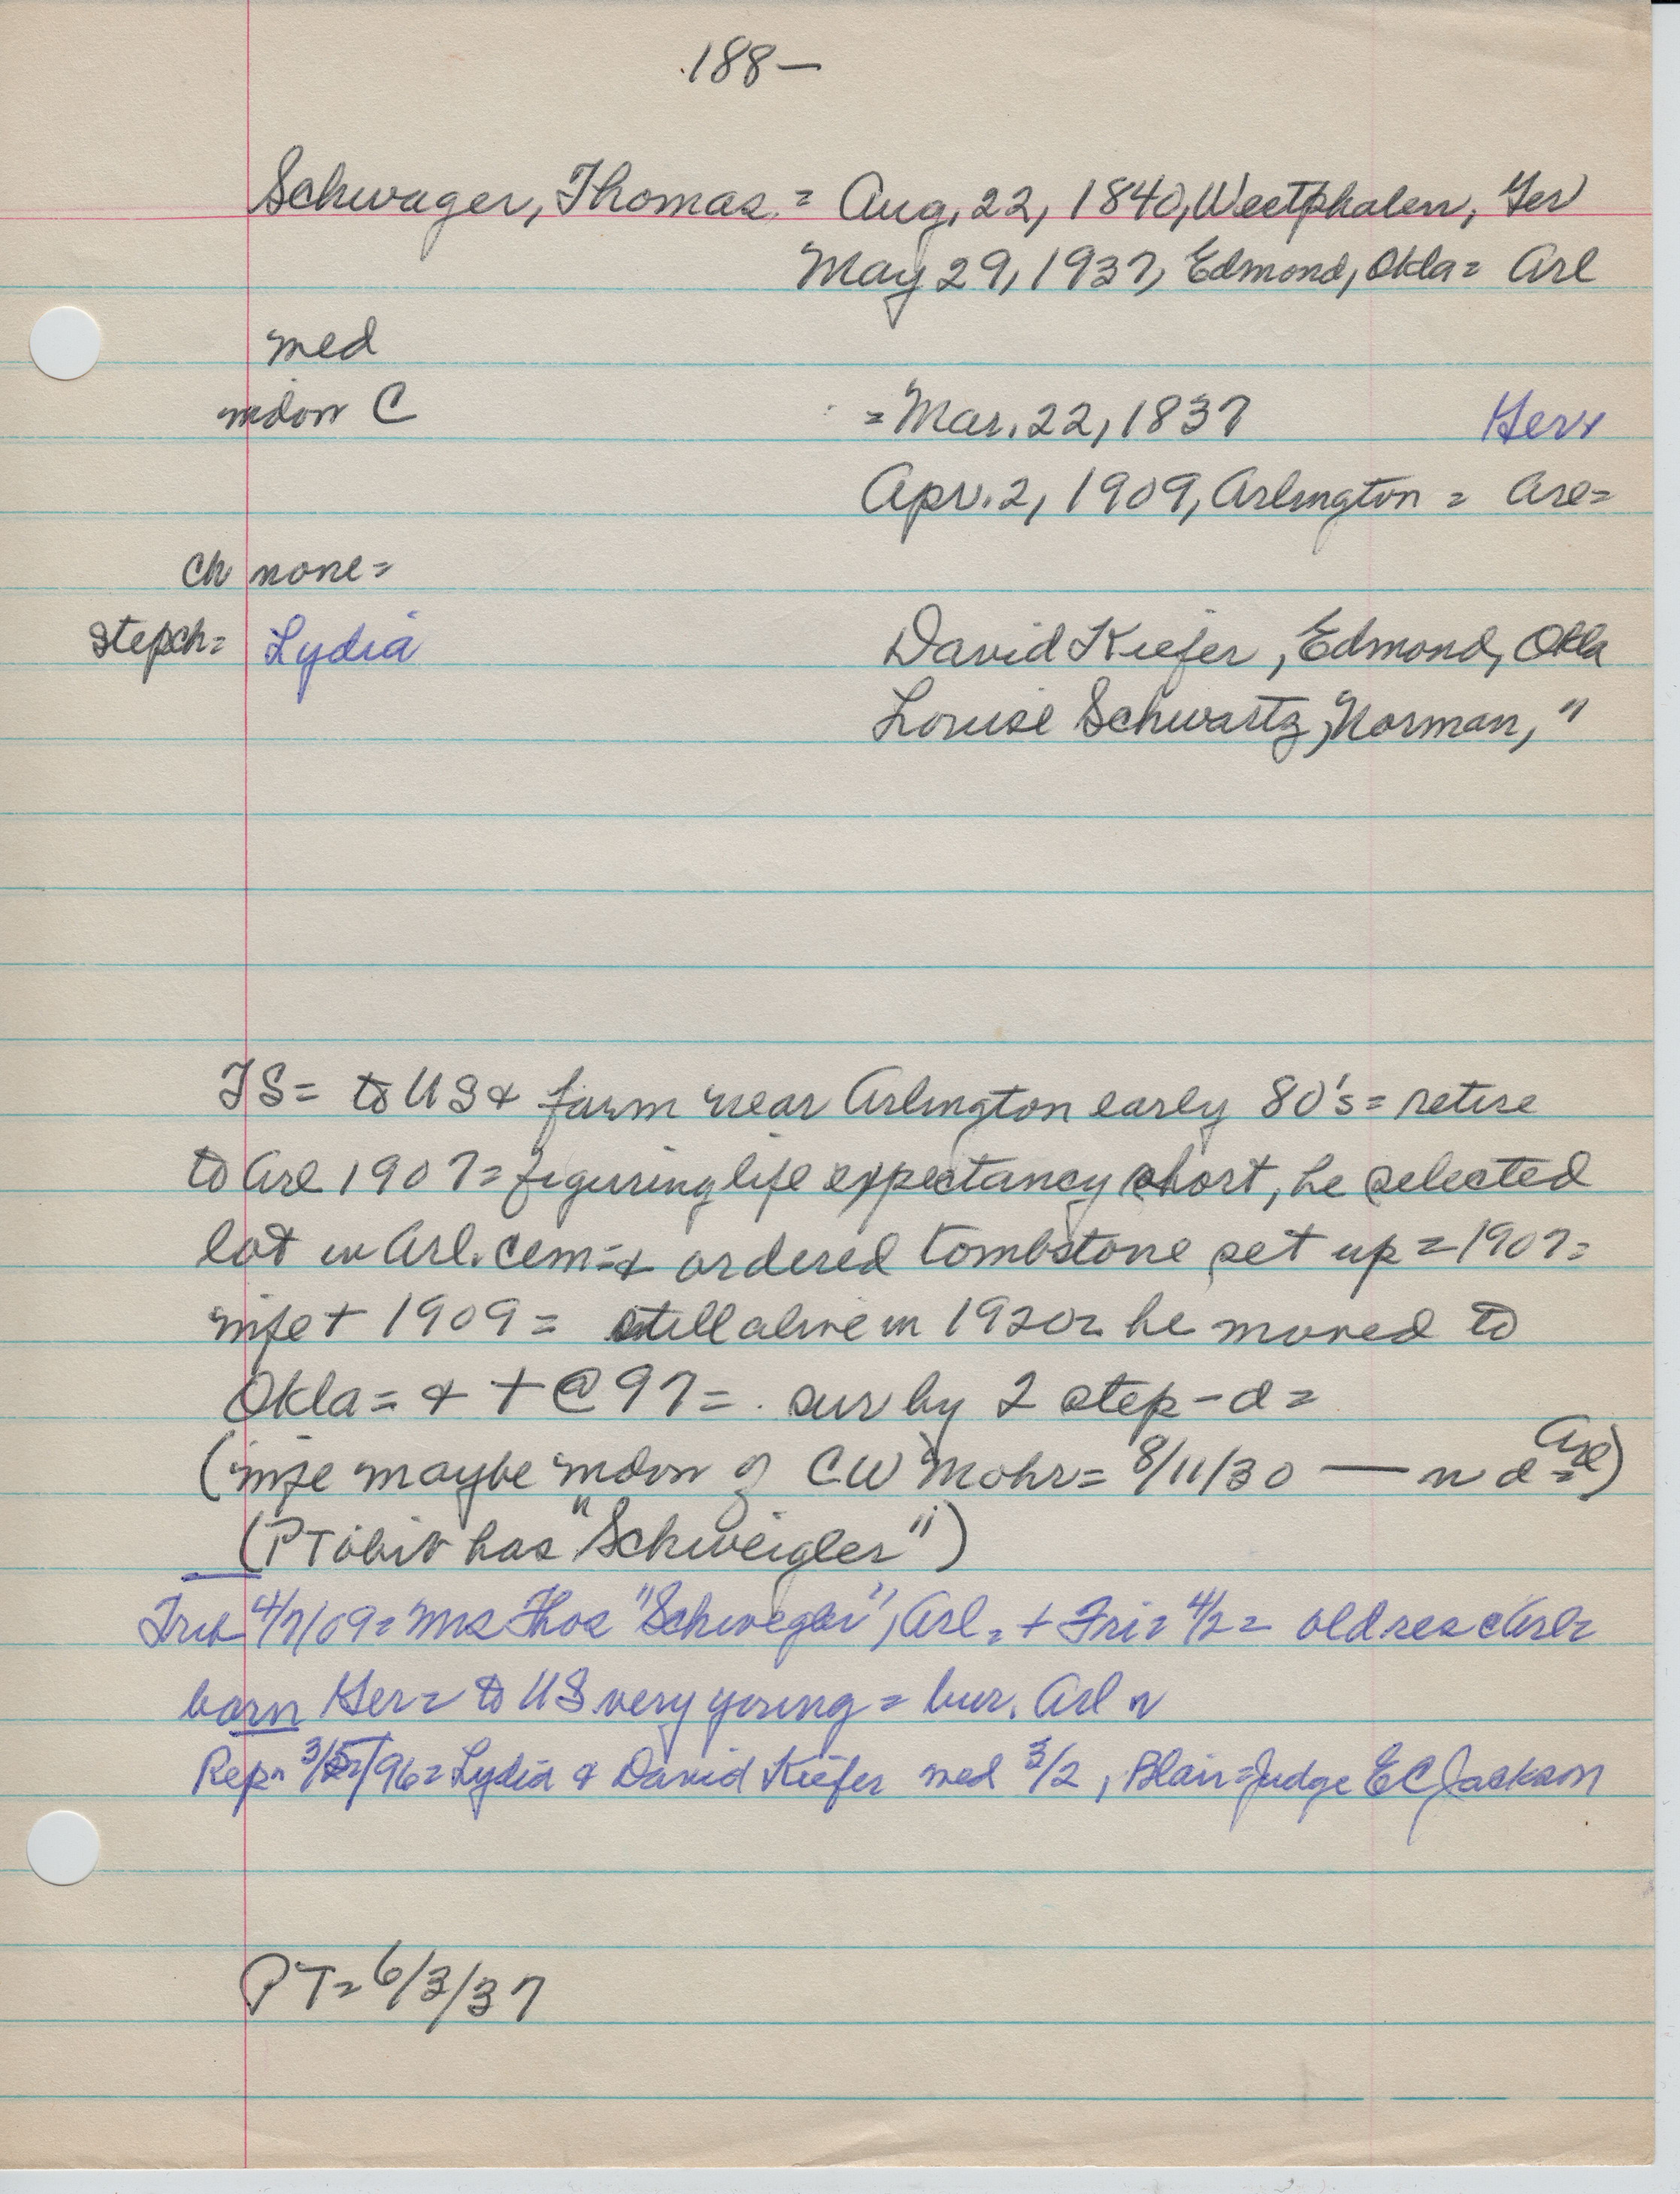 188-
Schwager, Thomas = Aug. 22, 1840, Westphalen, Ger
May 29, 1937, Edmond, Okla = Arl
med
mdon C = Mar. 22, 1837 Ger
Apr. 2, 1909, Arlington = Arl =
ch none =
stepch = Lydia David Kiefer, Edmond, Okla
Louise Schwartz, Norman, "
TS = to US & farm near Arlington early 80's = retire
to Arl 1907 = figuring life expectancy short, he selected
lot in Arl. cem = & ordered tombstone set up = 1907 =
wife + 1909 = still alive in 1920 = he moved to
Okla = & + @ 97 = sur by 2 step-d =
(wife maybe mdon of CW Mohr = 8/11/30 — n d = Arl)
(PT obit has "Schweigler")
Trib 4/7/09 = Mrs Thos "Schwegler", Arl = + Fri = 4/2 = old res Arl =
born Ger = to US very young = bur. Arl n
Rep = 3/5/96 = Lydia & David Kiefer med 3/2, Blair = Judge EC Jackson
PT = 6/3/37